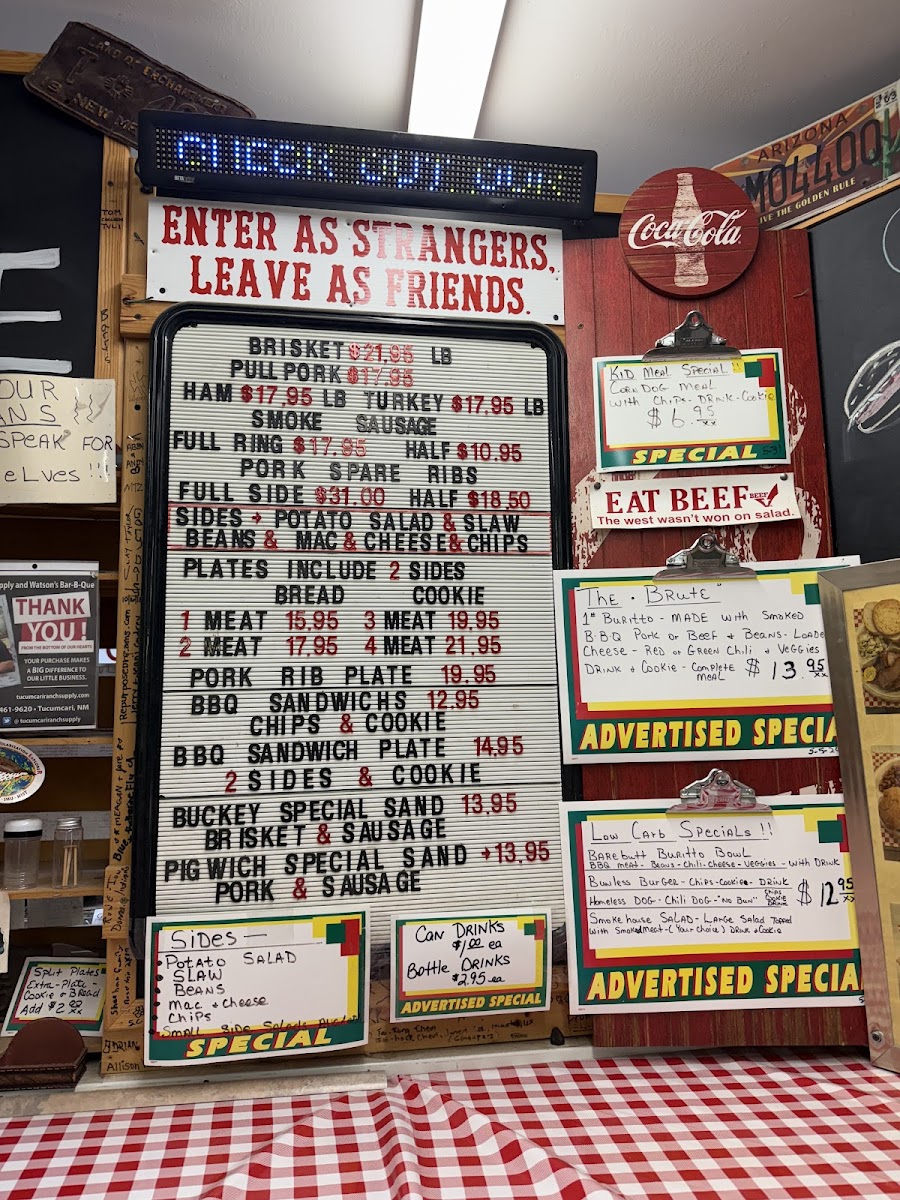 LAND OF ENCHANTMENT
NEW MEX
CHECK OUT OUR
ARIZONA
MO4400
LIVE THE GOLDEN RULE
ENTER AS STRANGERS,
LEAVE AS FRIENDS.
Coca-Cola
BRISKET $21.95 LB
PULL PORK $17.95
HAM $17.95 LB TURKEY $17.95 LB
SMOKE SAUSAGE
FULL RING $17.95 HALF $10.95
PORK SPARE RIBS
FULL SIDE $31.00 HALF $18.50
SIDES POTATO SALAD & SLAW
BEANS & MAC & CHEESE & CHIPS
PLATES INCLUDE 2 SIDES
BREAD COOKIE
1 MEAT 15.95 3 MEAT 19.95
2 MEAT 17.95 4 MEAT 21.95
PORK RIB PLATE 19.95
BBQ SANDWICHS 12.95
CHIPS & COOKIE
BBQ SANDWICH PLATE 14.95
2 SIDES & COOKIE
BUCKEY SPECIAL SAND 13.95
BRISKET & SAUSAGE
PIGWICH SPECIAL SAND 13.95
PORK & SAUSAGE
KID MEAL SPECIAL!!
CORNDOG MEAL
with CHIPS-DRINK-COOKIE
$6.95
SPECIAL
EAT BEEF BEEF
The west wasn't won on salad.
THE BRUTE
1# BURITTO - MADE with SMOKED
B-B-Q PORK or BEEF + BEANS - LOADE
CHEESE - RED or GREEN CHILI + VEGGIES
DRINK + COOKIE - COMPLETE MEAL $13.95
ADVERTISED SPECIA
LOW CARB SPECIALS!!
BAREbutt BURITTO BOWL
BBQ MEAT - BEANS - CHILI - CHEESE - VEGGIES - with DRINK
BUNLESS BURGER - CHIPS - COOKIE - DRINK
HOMELESS DOG - CHILI DOG - "NO BUN" CHIPS COOKIE DRINK $12.95
SMOKEHOUSE SALAD - LARGE SALAD TOPPED
with SMOKEDMEAT - (YOUR CHOICE) DRINK + COOKIE
ADVERTISED SPECIA
OUR
ANS
SPEAK FOR
eLVes!!
pply and Watson's Bar-B-Que
THANK
YOU!
FROM THE BOTTOM OF OUR HEARTS
YOUR PURCHASE MAKES
A BIG DIFFERENCE TO
OUR LITTLE BUSINESS.
tucumcariranchsupply.com
461-9620 • Tucumcari, NM
@tucumcariranchsupply
SPLIT PLATES
EXTRA-PLATE-
COOKIE & BREAD
ADD $2.00
SIDES —
POTATO SALAD
SLAW
BEANS
MAC + cheese
CHIPS
SPECIAL
CAN DRINKS
$1.00 ea
BOTTLE DRINKS
$2.95 ea
ADVERTISED SPECIAL
Allison